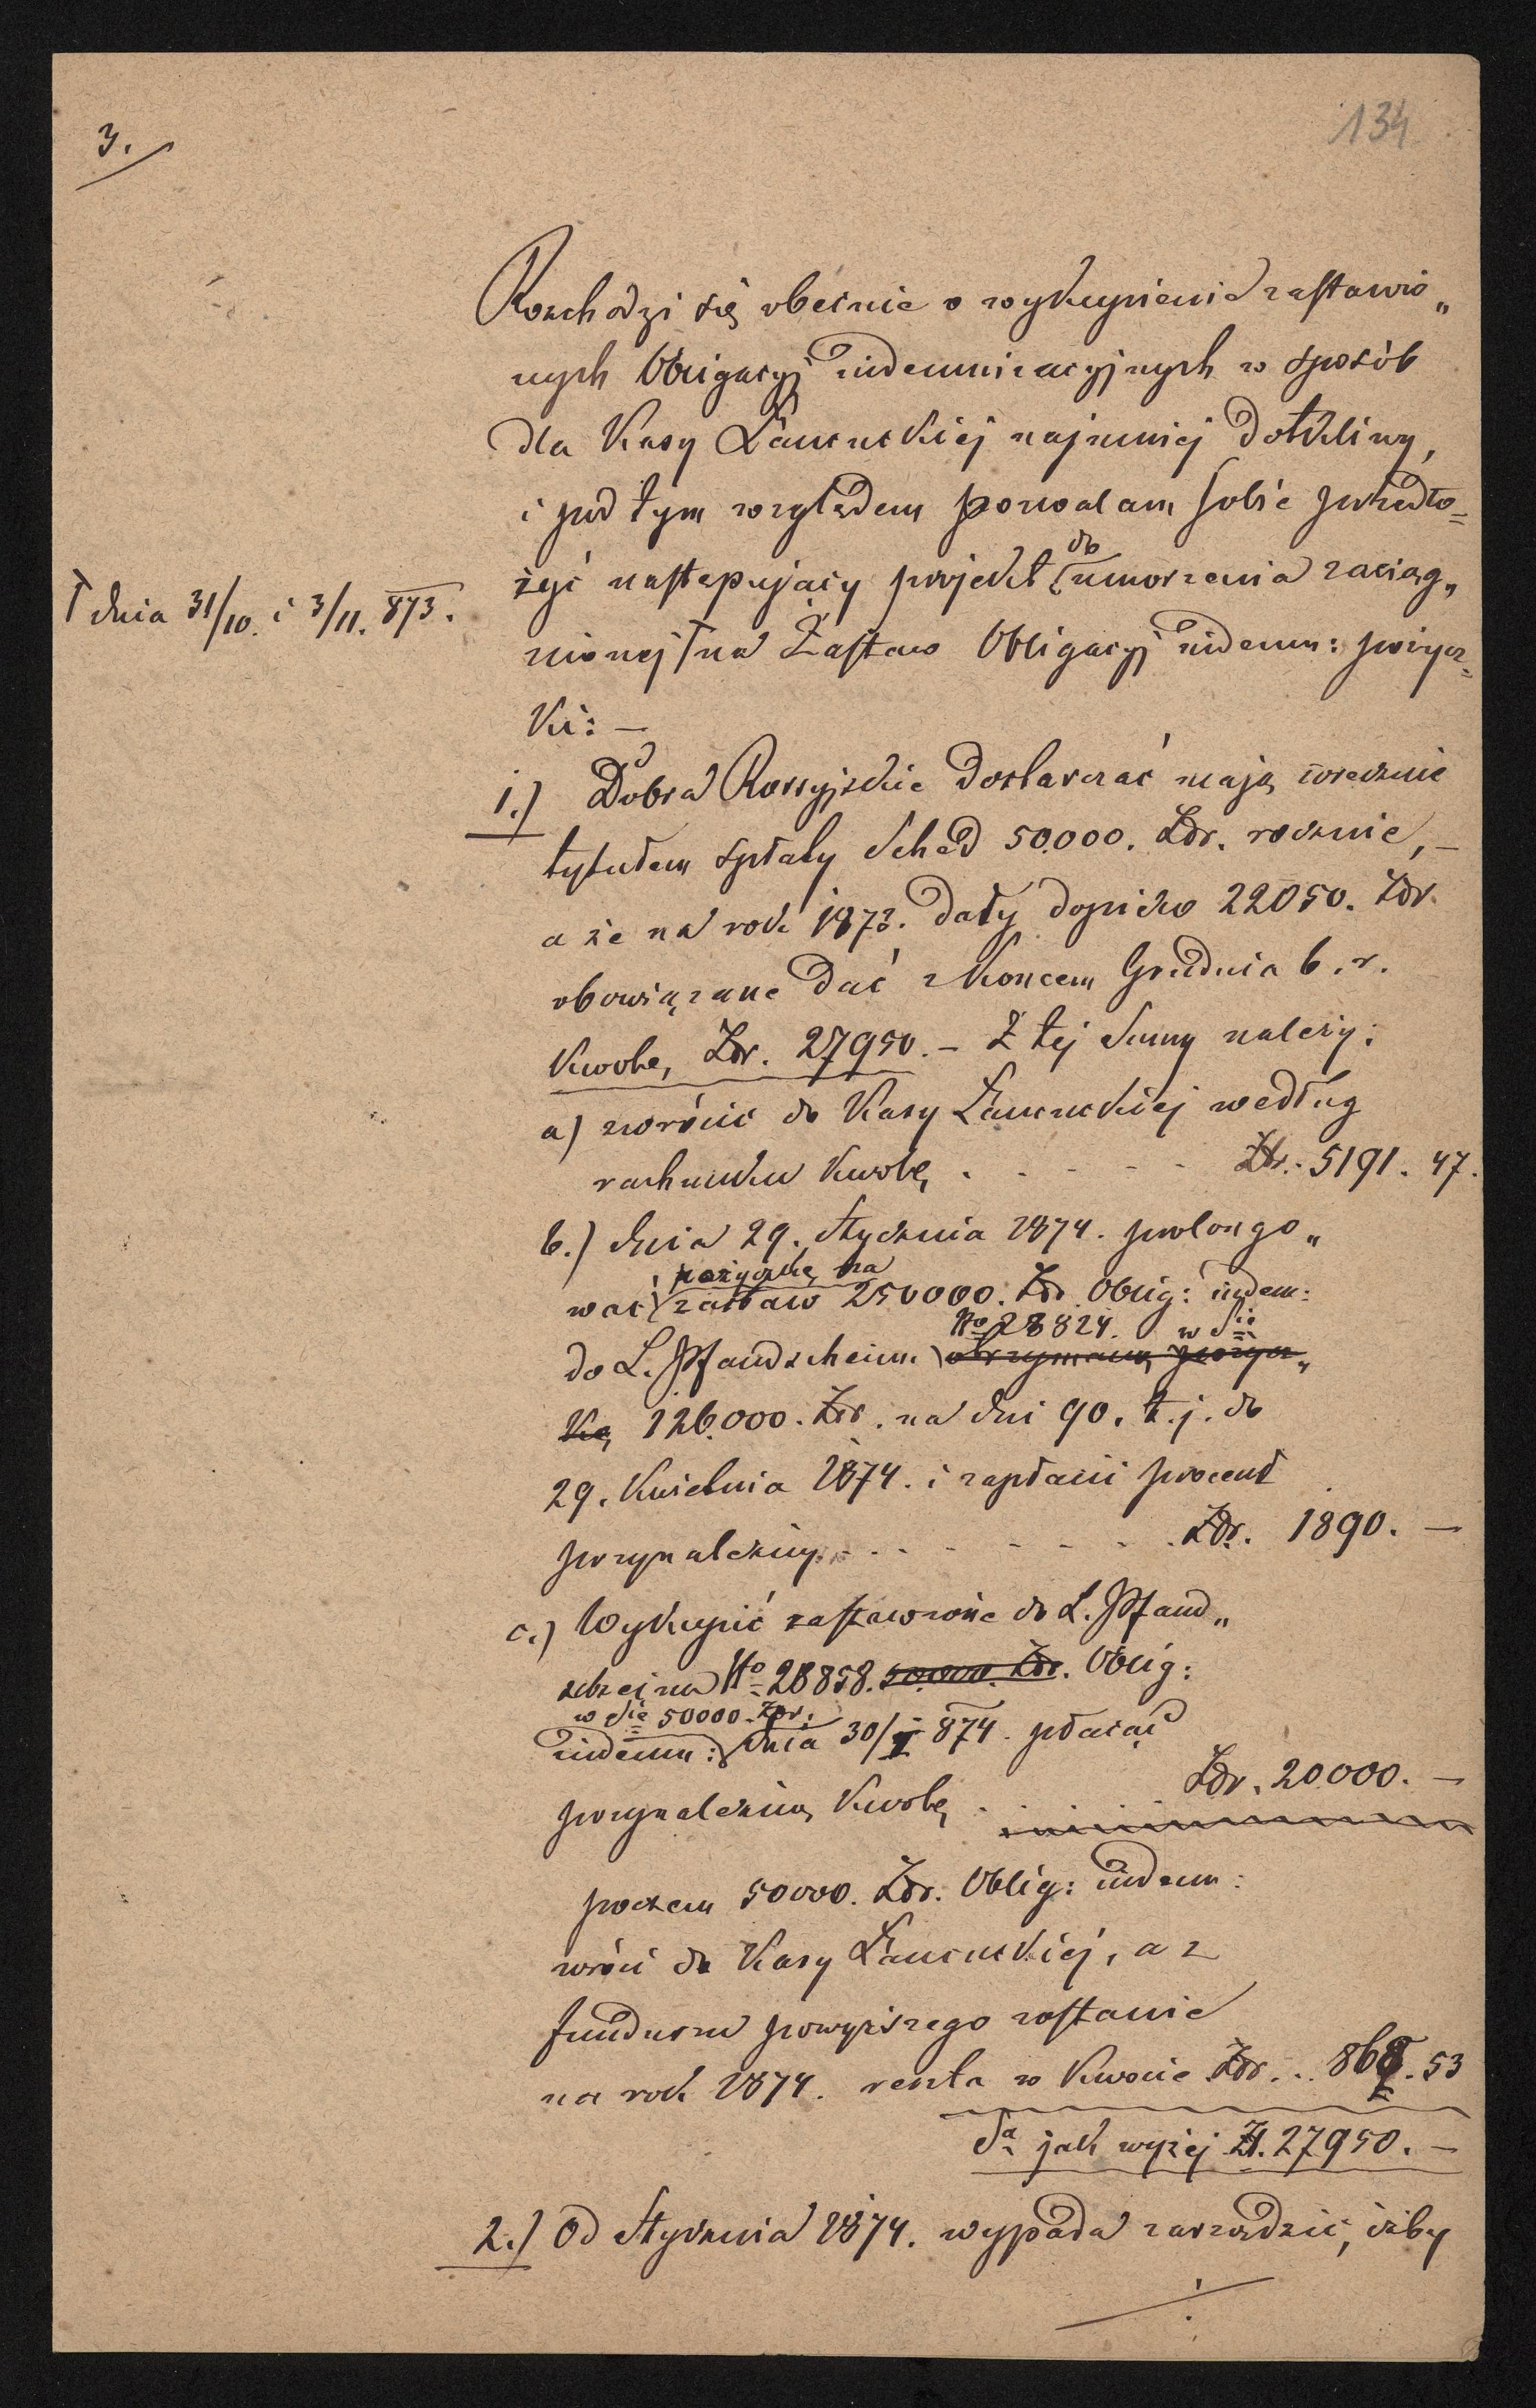 3.
134
Rozchodzi się obecnie o wykupienie zastawio„
nych Obligacyj indemnizacyjnych w sposób
dla Kasy Łańcuckiej najmniej dotkliwy,
i pod tym względem pozwalam sobie przedło=
żyć następujący projekt do umorzenia zaciąg„
† dnia 31/10. i 3/11. 873.
nionej † na Zastaw Obligacyj indemn: pożycz=
ki: —
1.) Dobra Rossyjskie dostarczać mają corocznie
tytułem spłaty Sched 50.000. Złr. rocznie, —
a że na rok 1873. dały dopiéro 22050. Złr.
obowiązane dać z końcem Grudnia b. r.
Kwotę, Złr. 27950. — Z tej Sumy należy:
a) zwrócić do Kasy Łańcuckiej według
rachunku Kwotę . - - - - - Złr. 5191. 47.
b.) dnia 29. Stycznia 1874. prolongo„
pożyczkę na
wać zastaw 250000. Złr. Oblig: indem:
No 28824. w Sie
do L. Pfandscheinu otrzymaną pożycz„
kę 126.000. Złr. na dni 90. t. j. do
29. Kwietnia 1874. i zapłacić procent
przynależny - - - - - - Złr. 1890. —
c.) Wykupić zastawione do L. Pfand„
scheinu No 28858. 50.000. Złr. Oblig:
w Sie 50000. Złr.
indemn: dnia 30/I 874. płacąc
przynależną Kwotę . . . . Złr. 20000. —
poczem 50000. Złr. Oblig: indemn:
wróci do Kasy Łańcuckiéj, a z
funduszu powyższego zostanie
na rok 1874. reszta w Kwocie Złr... 868. 53
Sa jak wyżej Zł. 27950. —
2.) Od Stycznia 1874. wypada zarządzić, iżby
./.